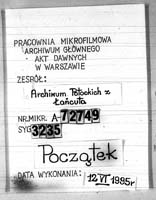 PRACOWNIA MIKROFILMOWA
ARCHIWUM GŁÓWNEGO
AKT DAWNYCH
W WARSZAWIE
ZESPÓŁ:
Archiwum Potockich z
Łańcuta
NR.MIKR. A-72749
SYG. 3235
Początek
DATA WYKONANIA: 12 VI 1985r